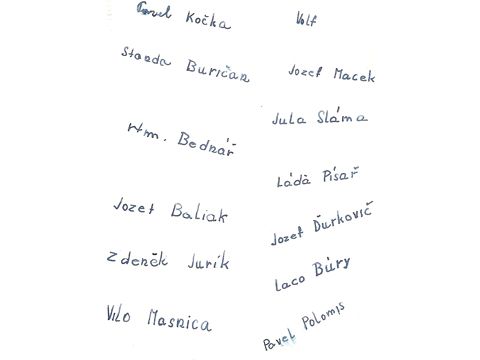 Pavel Kočka
Standa Buričan
Hm. Bednář
Jozef Baliak
Zdeněk Jurík
Vilo Masnica
Volf
Jozef Macek
Jula Sláma
Láďa Písař
Jozef Ďurkovič
Laco Búry
Pavel Polomis